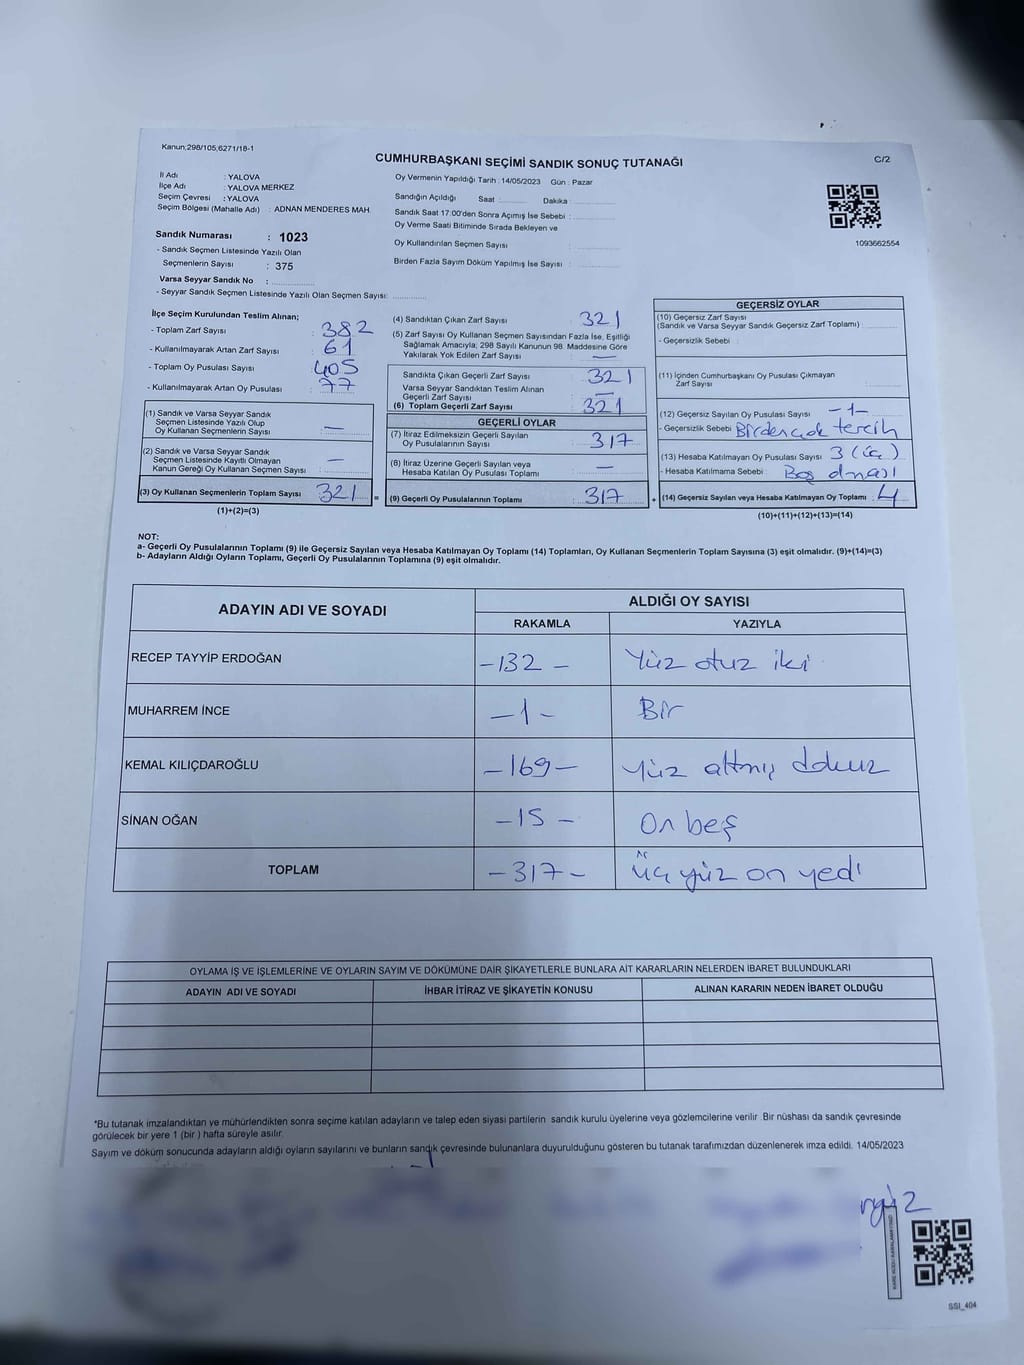 Kanun;298/105,6271/18-1
CUMHURBAŞKANI SEÇİMİ SANDIK SONUÇ TUTANAĞI
C/2
İl Adı : YALOVA
İlçe Adı : YALOVA MERKEZ
Seçim Çevresi : YALOVA
Seçim Bölgesi (Mahalle Adı) : ADNAN MENDERES MAH.
Oy Vermenin Yapıldığı Tarih : 14/05/2023 Gün : Pazar
Sandığın Açıldığı Saat : Dakika :
Sandık Saat 17.00'den Sonra Açımış İse Sebebi :
Oy Verme Saati Bitiminde Sırada Bekleyen ve
Oy Kullandırılan Seçmen Sayısı :
Birden Fazla Sayım Döküm Yapılmış İse Sayısı :
1093662554
Sandık Numarası : 1023
- Sandık Seçmen Listesinde Yazılı Olan
Seçmenlerin Sayısı : 375
Varsa Seyyar Sandık No :
- Seyyar Sandık Seçmen Listesinde Yazılı Olan Seçmen Sayısı:
İlçe Seçim Kurulundan Teslim Alınan;
- Toplam Zarf Sayısı : 382
- Kullanılmayarak Artan Zarf Sayısı : 61
- Toplam Oy Pusulası Sayısı : 405
- Kullanılmayarak Artan Oy Pusulası : 77
(1) Sandık ve Varsa Seyyar Sandık
Seçmen Listesinde Yazılı Olup
Oy Kullanan Seçmenlerin Sayısı : —
(2) Sandık ve Varsa Seyyar Sandık
Seçmen Listesinde Kayıtlı Olmayan
Kanun Gereği Oy Kullanan Seçmen Sayısı : —
(3) Oy Kullanan Seçmenlerin Toplam Sayısı 321 =
(1)+(2)=(3)
(4) Sandıktan Çıkan Zarf Sayısı : 321
(5) Zarf Sayısı Oy Kullanan Seçmen Sayısından Fazla İse, Eşitliği
Sağlamak Amacıyla, 298 Sayılı Kanunun 98. Maddesine Göre
Yakılarak Yok Edilen Zarf Sayısı : —
Sandıkta Çıkan Geçerli Zarf Sayısı : 321
Varsa Seyyar Sandıktan Teslim Alınan
Geçerli Zarf Sayısı : —
(6) Toplam Geçerli Zarf Sayısı : 321
GEÇERLİ OYLAR
(7) İtiraz Edilmeksizin Geçerli Sayılan
Oy Pusulalarının Sayısı : 317
(8) İtiraz Üzerine Geçerli Sayılan veya
Hesaba Katılan Oy Pusulası Toplamı : —
(9) Geçerli Oy Pusulalarının Toplamı : 317 +
GEÇERSİZ OYLAR
(10) Geçersiz Zarf Sayısı
(Sandık ve Varsa Seyyar Sandık Geçersiz Zarf Toplamı) :
- Geçersizlik Sebebi :
(11) İçinden Cumhurbaşkanı Oy Pusulası Çıkmayan
Zarf Sayısı :
(12) Geçersiz Sayılan Oy Pusulası Sayısı : -1-
- Geçersizlik Sebebi : Birden çok tercih
(13) Hesaba Katılmayan Oy Pusulası Sayısı : 3 (üç)
- Hesaba Katılmama Sebebi : Boş olması
(14) Geçersiz Sayılan veya Hesaba Katılmayan Oy Toplamı : 4
(10)+(11)+(12)+(13)=(14)
NOT:
a- Geçerli Oy Pusulalarının Toplamı (9) ile Geçersiz Sayılan veya Hesaba Katılmayan Oy Toplamı (14) Toplamları, Oy Kullanan Seçmenlerin Toplam Sayısına (3) eşit olmalıdır. (9)+(14)=(3)
b- Adayların Aldığı Oyların Toplamı, Geçerli Oy Pusulalarının Toplamına (9) eşit olmalıdır.
ADAYIN ADI VE SOYADI
ALDIĞI OY SAYISI
RAKAMLA YAZIYLA
RECEP TAYYİP ERDOĞAN -132- Yüz otuz iki
MUHARREM İNCE -1- Bir
KEMAL KILIÇDAROĞLU -169- yüz altmış dokuz
SİNAN OĞAN -15- On beş
TOPLAM -317- üç yüz on yedi
OYLAMA İŞ VE İŞLEMLERİNE VE OYLARIN SAYIM VE DÖKÜMÜNE DAİR ŞİKAYETLERLE BUNLARA AİT KARARLARIN NELERDEN İBARET BULUNDUKLARI
ADAYIN ADI VE SOYADI İHBAR İTİRAZ VE ŞİKAYETİN KONUSU ALINAN KARARIN NEDEN İBARET OLDUĞU
*Bu tutanak imzalandıktan ve mühürlendikten sonra seçime katılan adayların ve talep eden siyasi partilerin sandık kurulu üyelerine veya gözlemcilerine verilir. Bir nüshası da sandık çevresinde
görülecek bir yere 1 (bir ) hafta süreyle asılır.
Sayım ve döküm sonucunda adayların aldığı oyların sayılarını ve bunların sandık çevresinde bulunanlara duyurulduğunu gösteren bu tutanak tarafımızdan düzenlenerek imza edildi. 14/05/2023
SSI_404